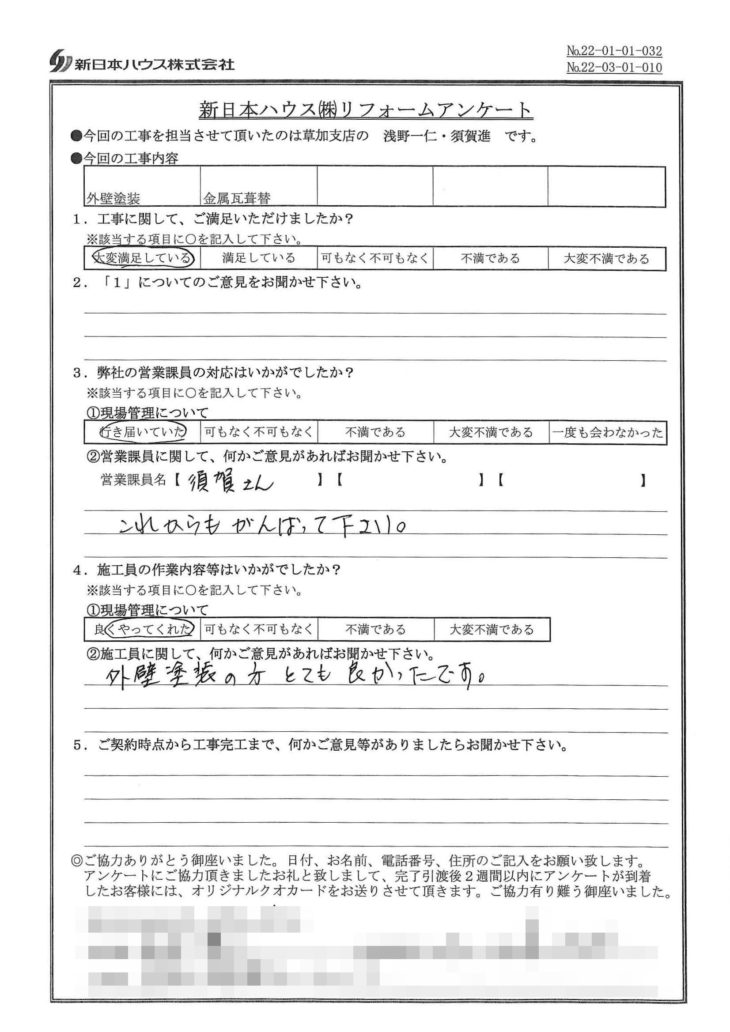 新日本ハウス株式会社
No.22-01-01-032
No.22-03-01-010
新日本ハウス㈱リフォームアンケート
●今回の工事を担当させて頂いたのは草加支店の 浅野一仁・須賀進 です。
●今回の工事内容
外壁塗装 金属瓦葺替
1．工事に関して、ご満足いただけましたか？
※該当する項目に○を記入して下さい。
大変満足している 満足している 可もなく不可もなく 不満である 大変不満である
2．「1」についてのご意見をお聞かせ下さい。
3．弊社の営業課員の対応はいかがでしたか？
※該当する項目に○を記入して下さい。
①現場管理について
行き届いていた 可もなく不可もなく 不満である 大変不満である 一度も会わなかった
②営業課員に関して、何かご意見があればお聞かせ下さい。
営業課員名【 須賀さん 】【 】【 】
これからもがんばって下さい。
4．施工員の作業内容等はいかがでしたか？
※該当する項目に○を記入して下さい。
①現場管理について
良くやってくれた 可もなく不可もなく 不満である 大変不満である
②施工員に関して、何かご意見があればお聞かせ下さい。
外壁塗装の方とても良かったです。
5．ご契約時点から工事完工まで、何かご意見等がありましたらお聞かせ下さい。
◎ご協力ありがとう御座いました。日付、お名前、電話番号、住所のご記入をお願い致します。
アンケートにご協力頂きましたお礼と致しまして、完了引渡後2週間以内にアンケートが到着
したお客様には、オリジナルクオカードをお送りさせて頂きます。ご協力有り難う御座いました。